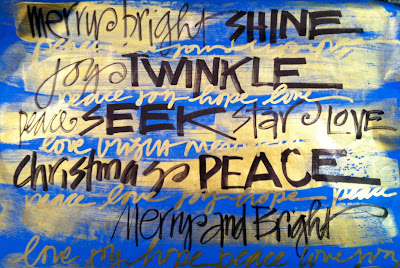 merry & bright SHINE
peace
joy TWINKLE
peace joy hope love
peace SEEK star LOVE
love bright
christmas PEACE
peace love joy hope peace
Merry and Bright
love joy hope peace love joy